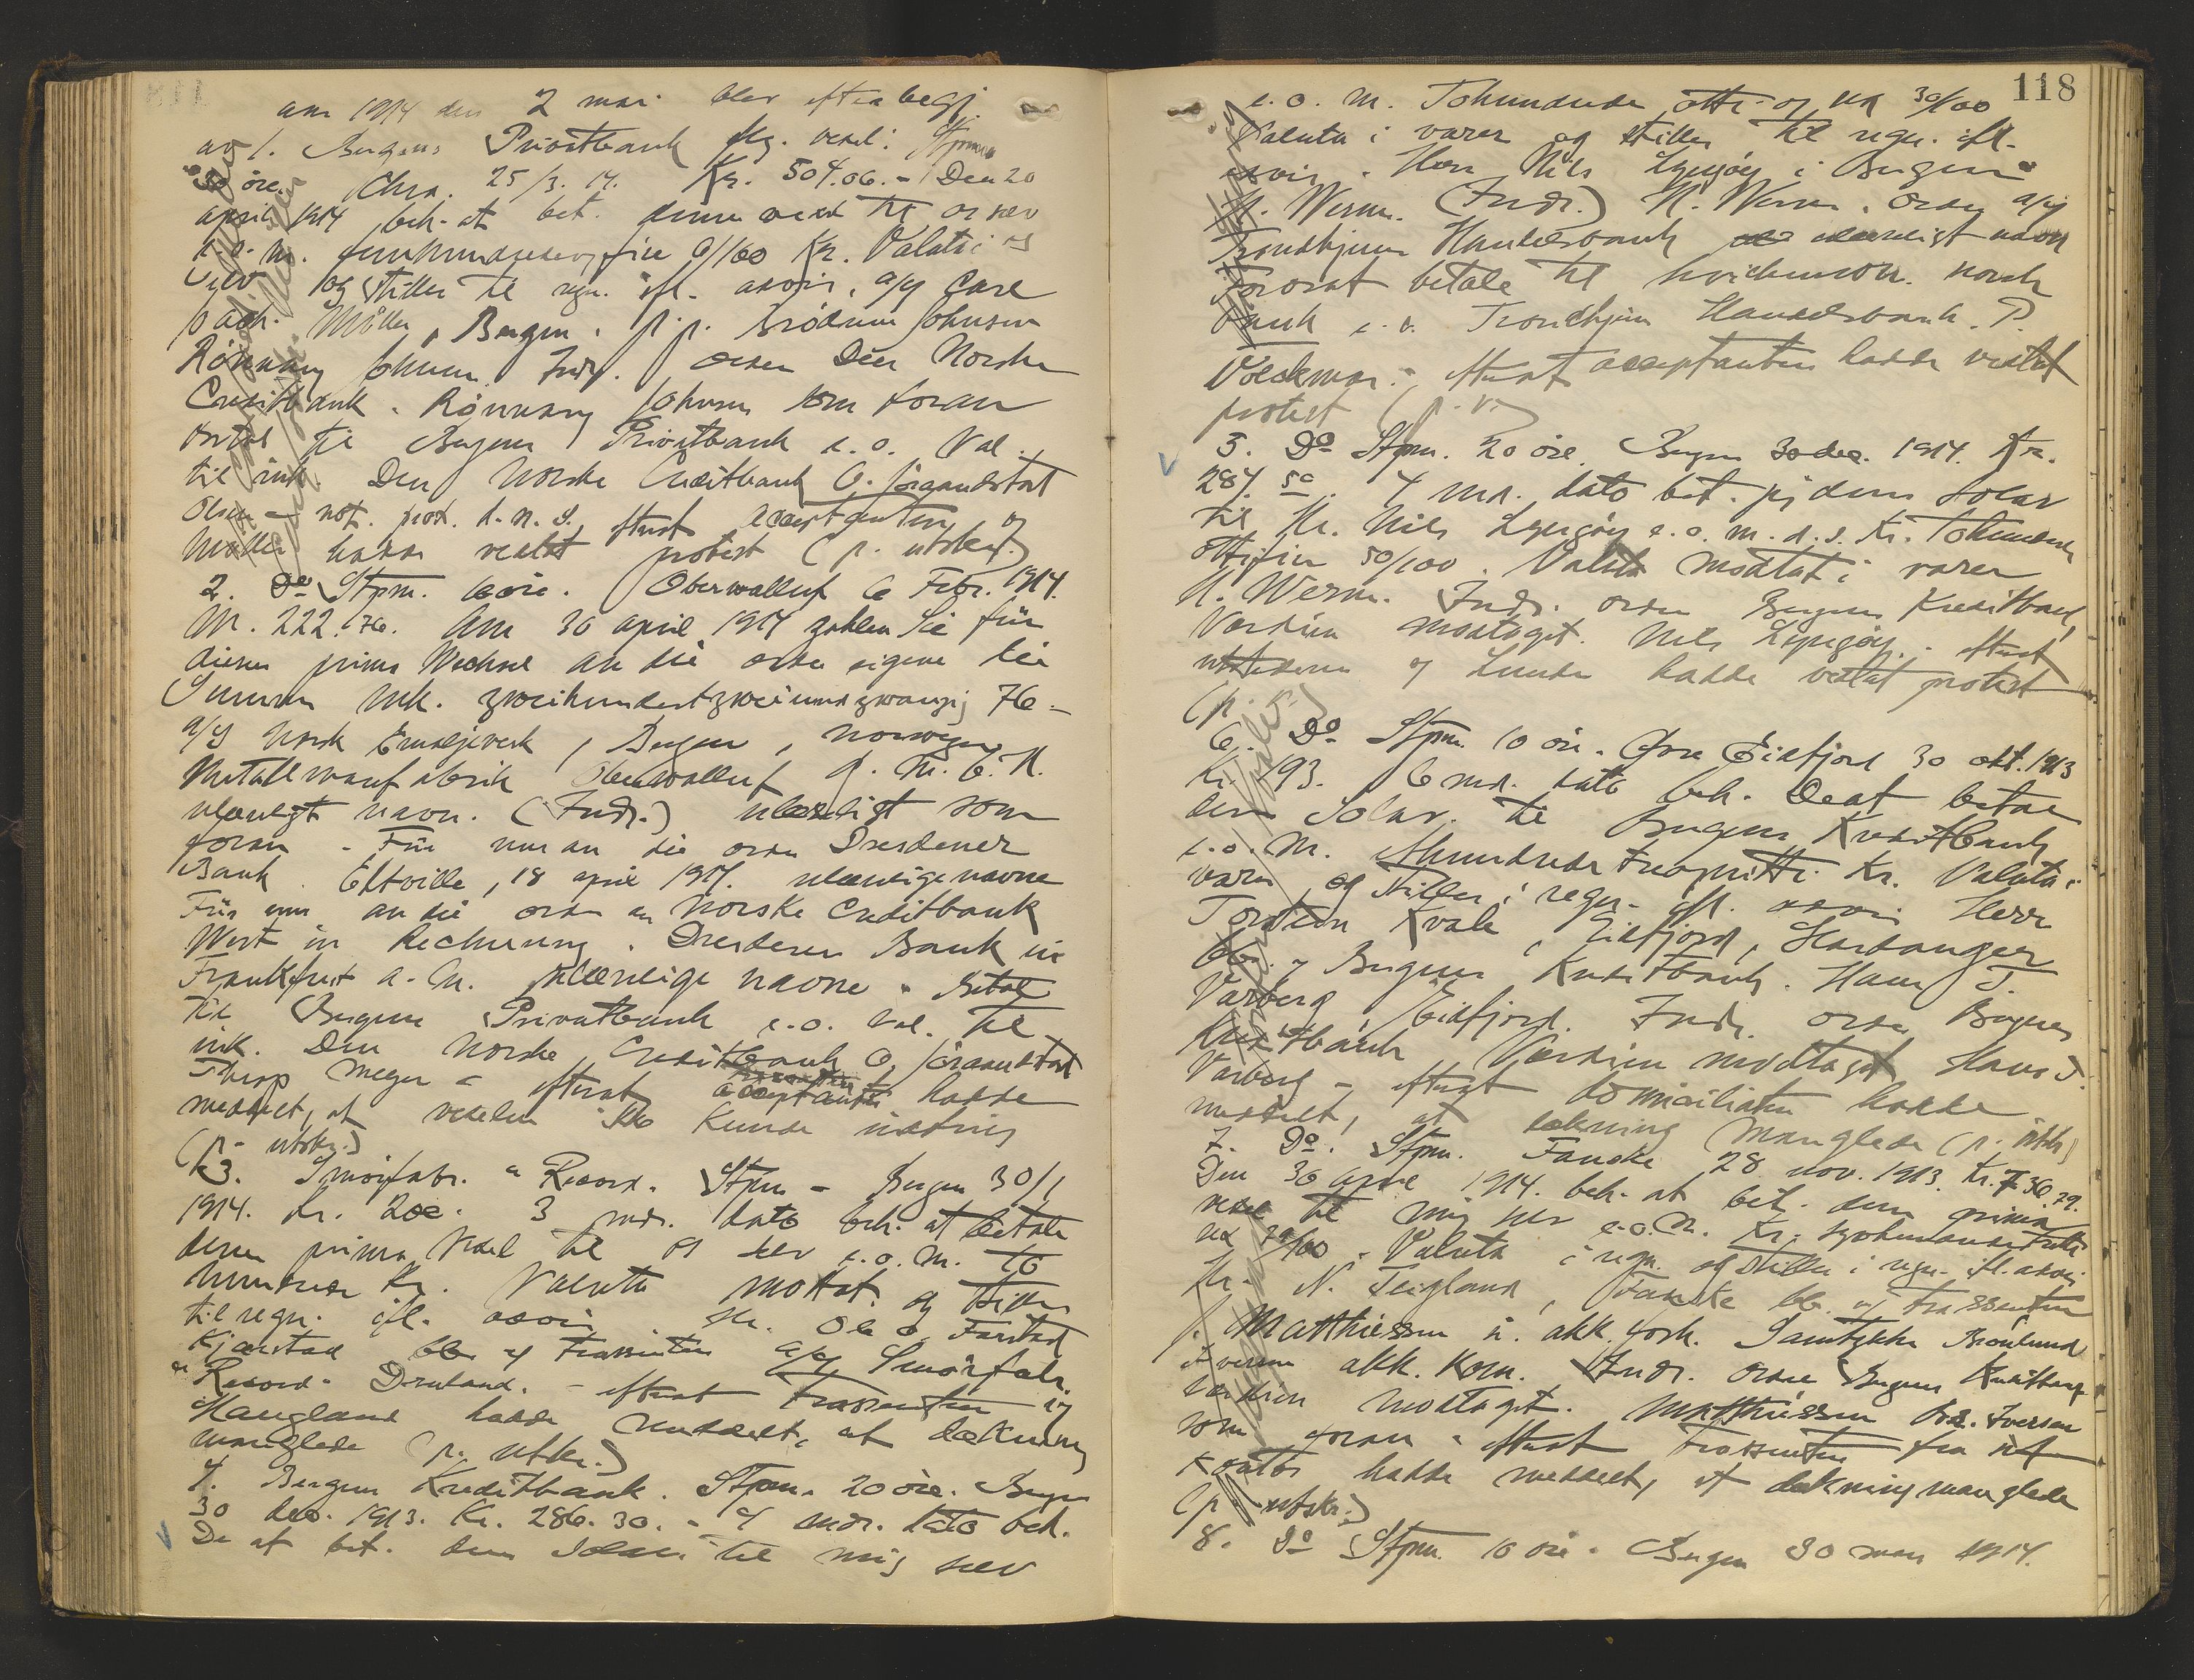 118
anr 1914 den 2 mai blev efter begj.
av 1. Bergens Privatbank flg. vexel: Stpm
30 öre. Chra. 25/3. 14. Kr. 504.06. - Den 20
april 1914 beh. at bet. denne vexel til os selv
e. o. m. femhundredeogfire 6/100 Kr. Valuta i os
selv og stilles til regn. ifl. avvis, a/s Carl
Møller, Bergen. p.p. Brödrene Johnsen
Rönnaug Johnsen. Indr. orden Den Norske
Creditbank. Rönnaug Johnsen som foran
betal til Bergens Privatbank e. o. Val.
til ink. Den Norske Creditbank O. Jörandstad
Olsen - not. prot. d. n. s. efterat acceptanten, og
Møller hadde vedtat protest (p. utskr.)
2. Do Stpm. öre. Oberwalluf 6 Febr. 1914.
M. 222.76. Am 30 april 1914 zahlen Sie für
diesen prima Wechsel an die order eigene die
Summe Mk. zweihundertzweiundzwanzig 76 -
a/s Norsk Emaljeverk, Bergen, Norwegen
Metallwarenfabrik Oberwalluf G. M. b. H.
ulæseligt navn. (Indr.) ulæseligt som
foran - Für mich an die order Dresdener
Bank. Eltville, 18 april 1914. ulæselige navne
Für uns an die order den Norske Creditbank
Wert in Rechnung. Dresdener Bank in
Frankfurt a. M. ulæselige navne. Betal
til Bergens Privatbank e. o. Val. til
ink. Den Norske Creditbank O. Jörandstad
Thorp Meyer - efterat acceptanten hadde
meddelt, at vexelen ikke kunde indfries
(p. utskr.)
3. Smörfabr. "Record. Stpm - Bergen 30/1
1914. Kr. 200. 3 mdr. dato beh. at betale
denne prima vexel til os selv e. o. m. to
hundrede Kr. Valuta mottat og stilles
til regn. ifl. avvis. Hr. Ole O. Farstad
Kjørstad bb. af trassenten a/s Smörfabr.
"Record" Druland. - efterat trassenten og
Haugland hadde meddelt, at dækning
manglede (p. utskr.)
4. Bergens Kreditbank. Stpm. 20 öre. Bergen
30 dec. 1913. Kr. 286.30. - 4 mdr. dato beh.
De at bet. denne Solar til mig selv
e. o. m. Tohundrede otti- og sex 30/100
Valuta i varer og stilles til regn. ifl.
avvis. Herr Nils Lyngöy i Bergen
N. Werm. (Indr.) N. Werm. Orden a/s
Trondhjems Handelsbank ulæseligt navn
Foranst betale til hvilkensom. norsk
bank e. o. Trondhjem Handelsbank. P.
Volckmar. - efterat acceptanten hadde vedtat
protest (p. u.)
5. Do Stpm. 20 öre. Bergen 30 dec. 1914. Kr.
284. 50. 4 md. dato bet. pg denne Solar
til Hr. Nils Lyngöy e. o. m. d. s. Kr. Tohundrede
ottifire 50/100. Valuta modtat i varer
N. Werm. Indr. orden Bergens Kreditbank,
Værdien modtaget. Nils Lyngöy. - efterat
utstederen og Lunde hadde vedtat protest
(p.
6. Do Stpm. 10 öre. Övre Eidfjord 30 okt. 1913
Kr. 193. 6 md. dato beh. De at betale
denne Solar til Bergens Kreditbank
e. o. m. Hundrede treognitti Kr. Valuta i
varer og stilles i regn. ifl. avvis Herr
Torstein Kvale, Eidfjord, Hardanger
bb. af Bergens Kreditbank. Hans J.
Varberg, Eidfjord. Indr. orden Bergens
Kreditbank Værdien modtaget Hans J.
Varberg - efterat domiciliaten hadde
meddelt, at dækning manglede (p. utskr.)
7. Do. Stpm. Fauske 28 nov. 1913. Kr. 736.29.
Den 30 april 1914. beh. at bet. denne prima
vexel til mig selv e. o. m. Kr. syvhundredetretti
sex 29/100. Valuta i regn. og stilles i regn. ifl. avvis
Hr. N. Teigland, Fauske bb. af trassenten
J. Matthiessen u. akk. forh. Samtykke Brönlund
Iversen akk. kom. Indr. orden Bergens Kreditbank
Værdien modtaget. Matthiessen Iversen
som foran - efterat trassenten fra sit
kontor hadde meddelt, at dækning manglede
(p. utskr.)
8. Do Stpm 10 öre. Bergen 30 mars 1914.